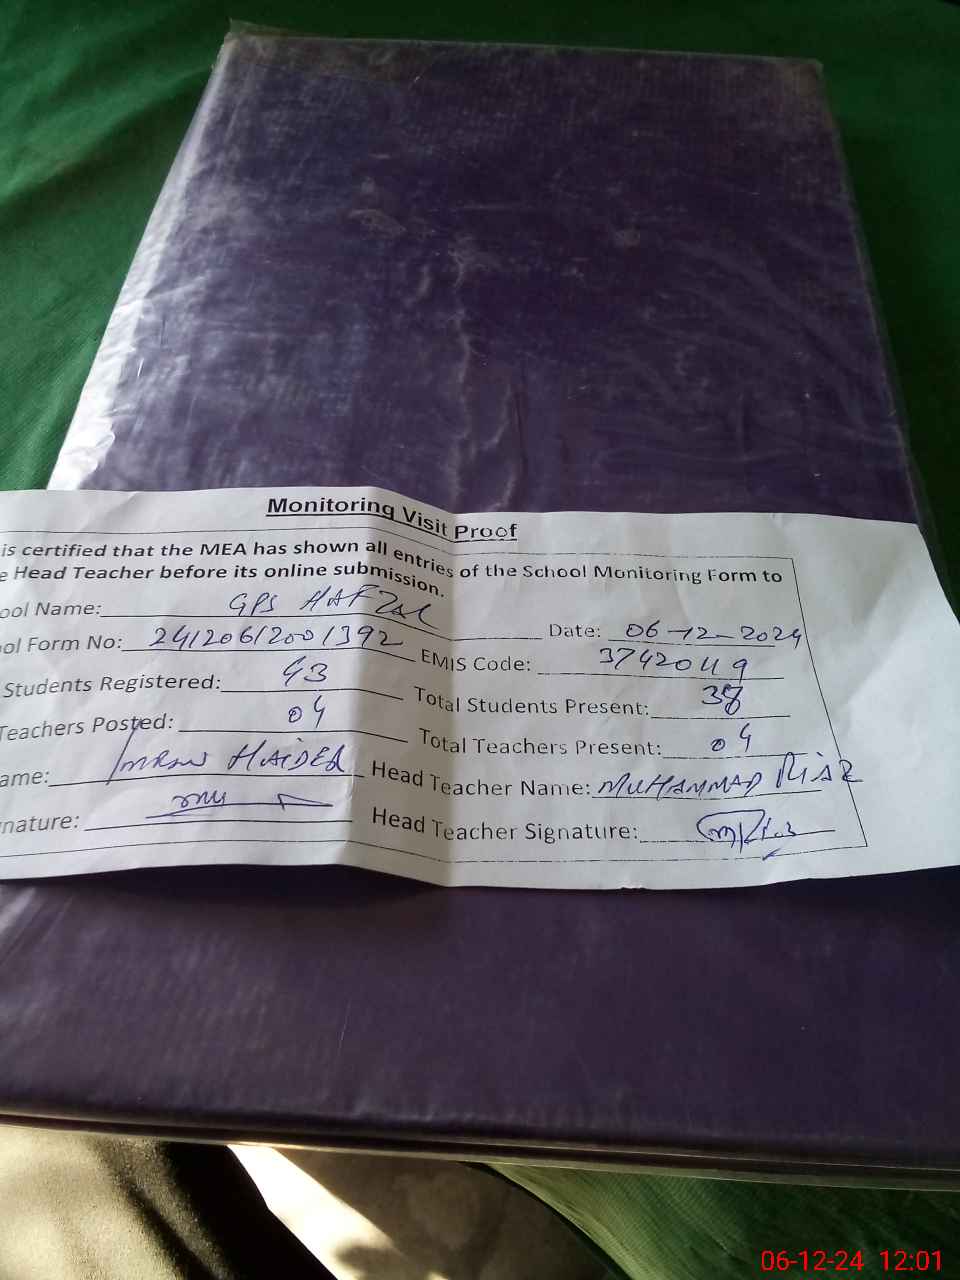 Monitoring Visit Proof
is certified that the MEA has shown all entries of the School Monitoring Form to
e Head Teacher before its online submission.
ool Name: GPS HAFZAL Date: 06-12-2024
ol Form No: 24120612001392 EMIS Code: 37420119
Students Registered: 43 Total Students Present: 38
Teachers Posted: 04 Total Teachers Present: 04
ame: IMRAN HAIDER Head Teacher Name: MUHAMMAD RIAZ
nature: Head Teacher Signature:
06-12-24 12:01